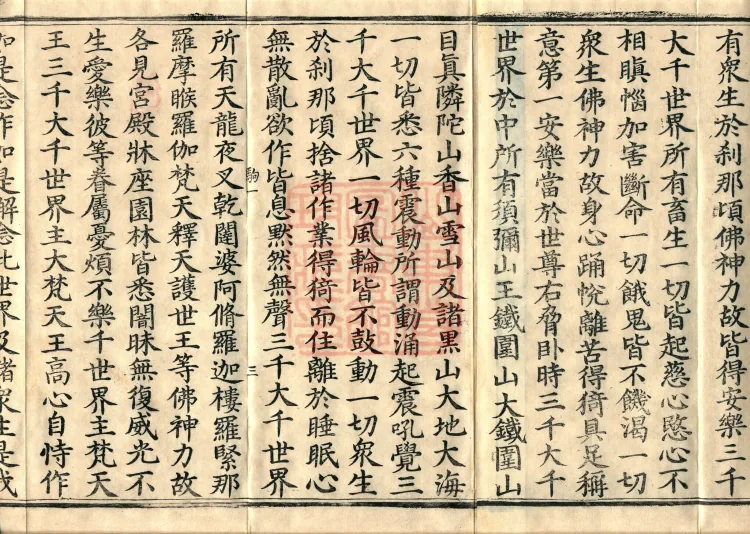 有衆生於刹那頃佛神力故皆得安樂三千
大千世界所有畜生一切皆起慈心愍心不
相瞋惱加害斷命一切餓鬼皆不饑渴一切
衆生佛神力故身心踊恱離苦得猗具足稱
意第一安樂當於世尊右脅卧時三千大千
世界於中所有須彌山王鐵圍山大鐵圍山
目眞隣陀山香山雪山及諸黒山大地大海
一切皆悉六種震動所謂動涌起震吼覺三
千大千世界一切風輪皆不鼓動一切衆生
於刹那頃捨諸作業得猗而住離於睡眠心
無散亂欲作皆息默然無聲三千大千世界
駒一 三
所有天龍夜叉乾闥婆阿脩羅迦樓羅緊那
羅摩睺羅伽梵天釋天護世王等佛神力故
各見宮殿牀座園林皆悉闇昧無復威光不
生愛樂彼等眷屬憂煩不樂千世界主梵天
王三千大千世界主大梵天王高心自恃作
如是念作如是解念此世界及諸衆生是我